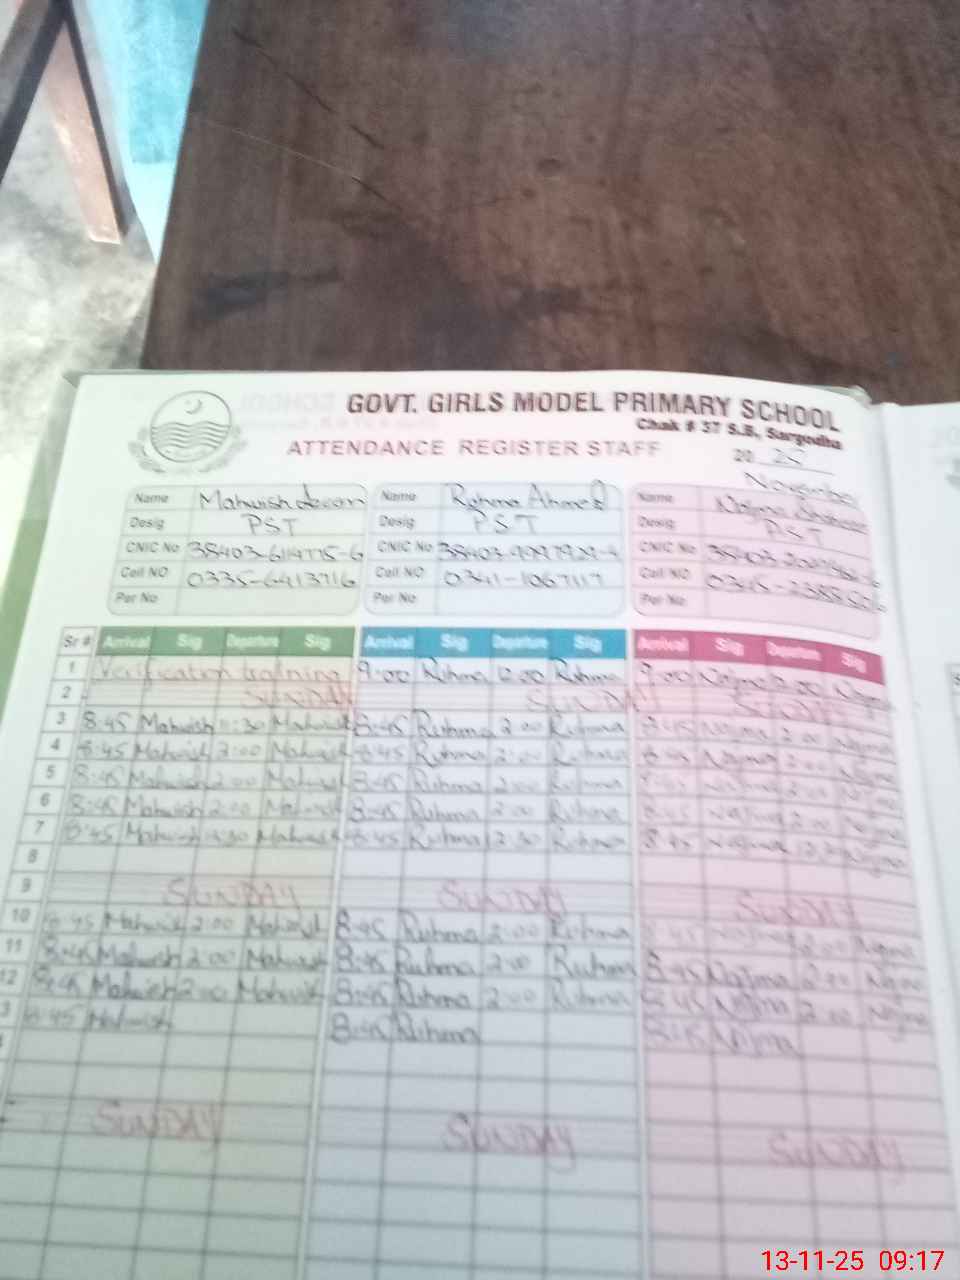 GOVT. GIRLS MODEL PRIMARY SCHOOL
Chak # 37 S.B, Sargodha
ATTENDANCE REGISTER STAFF
20
November
Name Mahwish
Desig PST
CNIC No 38403-6114775-6
Cell NO 0335-6413716
Per No
Name Ruhma Ahmed
Desig PST
CNIC No 38403-9097929-4
Cell NO 0341-1067117
Per No
Name Najma
Desig PST
CNIC No
Cell NO
Per No
Sr # Arrival Sig Departure Sig Arrival Sig Departure Sig Arrival Sig Departure Sig
1 Verification training 9:00 Ruhma 12:00 Ruhma 9:00 Najma 12:00 Najma
2 SUNDAY SUNDAY SUNDAY
3 8:45 Mahwish 11:30 Mahwish 8:45 Ruhma 2:00 Ruhma 8:45 Najma 2:00 Najma
4 8:45 Mahwish 2:00 Mahwish 8:45 Ruhma 2:00 Ruhma 8:45 Najma 2:00 Najma
5 8:45 Mahwish 2:00 Mahwish 8:45 Ruhma 2:00 Ruhma 8:45 Najma 2:00 Najma
6 8:45 Mahwish 2:00 Mahwish 8:45 Ruhma 2:00 Ruhma 8:45 Najma 2:00 Najma
7 8:45 Mahwish 12:30 Mahwish 8:45 Ruhma 2:30 Ruhma 8:45 Najma 12:30 Najma
8
9 SUNDAY SUNDAY SUNDAY
10 8:45 Mahwish 2:00 Mahwish 8:45 Ruhma 2:00 Ruhma 8:45 Najma 2:00 Najma
11 8:45 Mahwish 2:00 Mahwish 8:45 Ruhma 2:00 Ruhma 8:45 Najma 2:00 Najma
12 8:45 Mahwish 2:00 Mahwish 8:45 Ruhma 2:00 Ruhma 8:45 Najma 2:00 Najma
3 8:45 Mahwish 8:45 Ruhma 8:45 Najma
SUNDAY SUNDAY SUNDAY
13-11-25 09:17